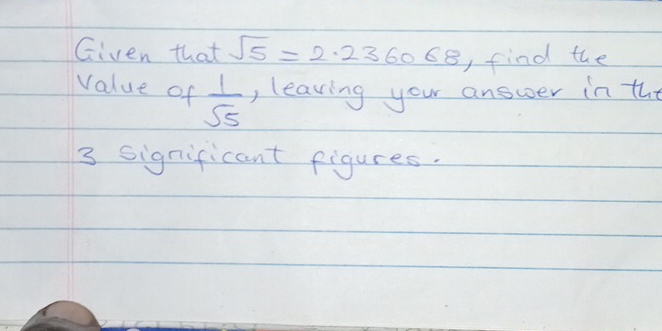 Given that √5 = 2.236068, find the
Value of 1/√5, leaving your answer in the
3 significant figures.